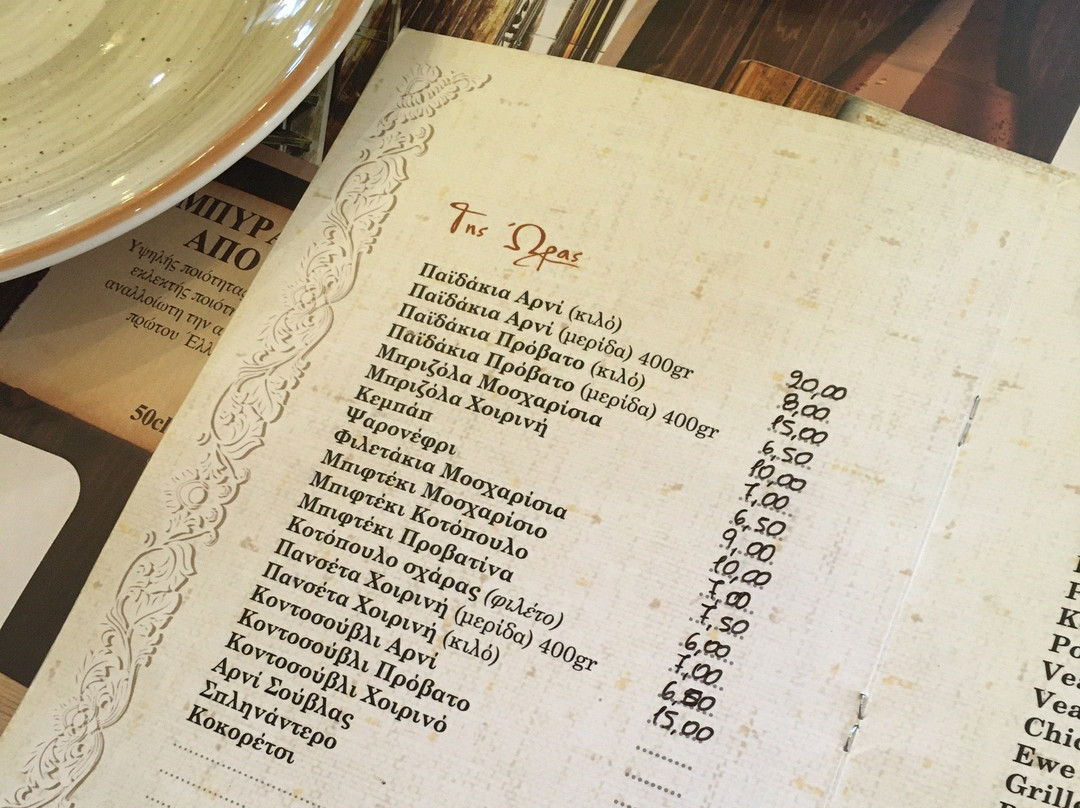 ΜΠΥΡΑ
ΑΠΟ
Υψηλής ποιότητας
εκλεκτής
αναλλοίωτη την
πρώτου
50cl
Της Ώρας
Παϊδάκια Αρνί (κιλό) 20,00
Παϊδάκια Αρνί (μερίδα) 400gr 8,00
Παϊδάκια Πρόβατο (κιλό) 15,00
Παϊδάκια Πρόβατο (μερίδα) 400gr 6,50
Μπριζόλα Μοσχαρίσια 10,00
Μπριζόλα Χοιρινή 7,00
Κεμπάπ 6,50
Ψαρονέφρι 9,00
Φιλετάκια Μοσχαρίσια 10,00
Μπιφτέκι Μοσχαρίσιο 7,00
Μπιφτέκι Κοτόπουλο 7,50
Μπιφτέκι Προβατίνα 6,00
Κοτόπουλο σχάρας (φιλέτο) 7,00
Πανσέτα Χοιρινή (μερίδα) 400gr 6,50
Πανσέτα Χοιρινή (κιλό) 15,00
Κοντοσούβλι Αρνί
Κοντοσούβλι Πρόβατο
Κοντοσούβλι Χοιρινό
Αρνί Σούβλας
Σπληνάντερο
Κοκορέτσι
Ewe